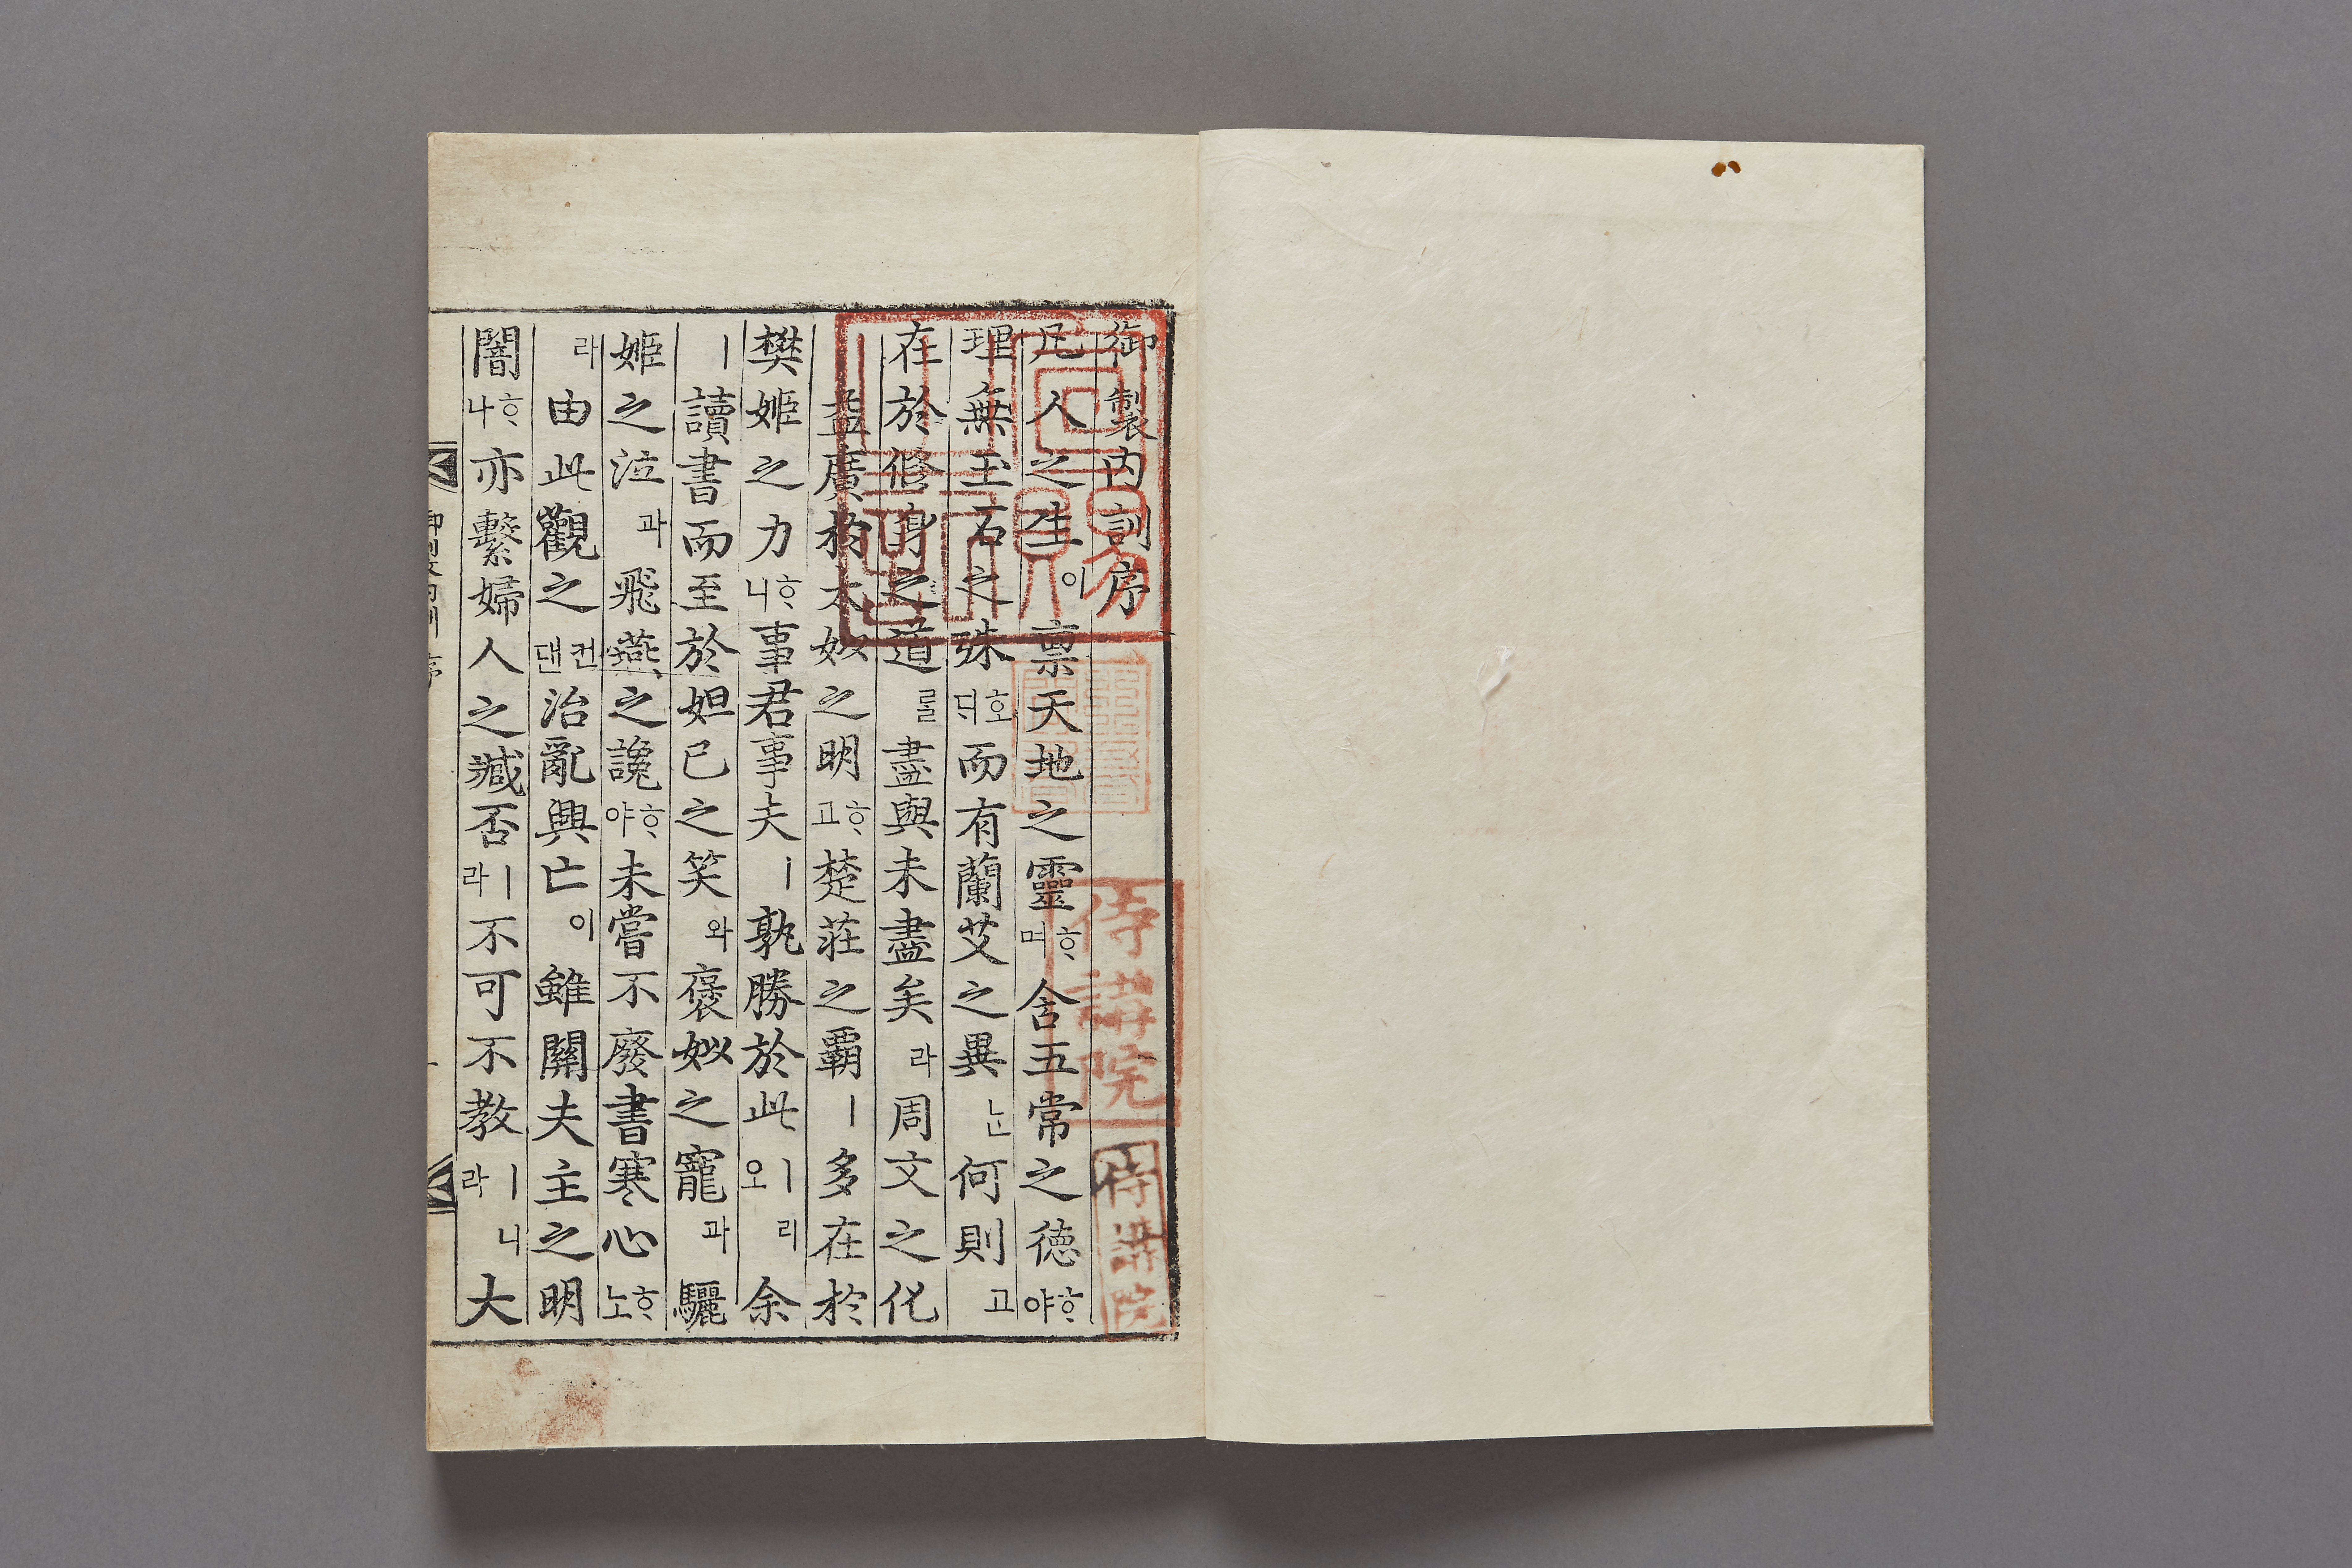 御製内訓序
凡人之生이稟天地之靈ᄒᆞ며含五常之德ᄒᆞ야
理無玉石之殊호ᄃᆡ而有蘭艾之異ᄂᆞᆫ何則고
在於修身之道ᄅᆞᆯ盡與未盡矣라周文之化
益廣於太姒之明ᄒᆞ고楚莊之覇ㅣ多在於
樊姬之力ᄒᆞ니事君事夫ㅣ孰勝於此ㅣ오리余
ㅣ讀書而至於妲己之笑와褒姒之寵과驪
姬之泣과飛燕之讒ᄒᆞ야未嘗不廢書寒心ᄒᆞ노
라由此觀之컨댄治亂興亡이雖關夫主之明
闇ᄒᆞ나亦繫婦人之臧否ㅣ라不可不教ㅣ라니大
侍講院
侍講院